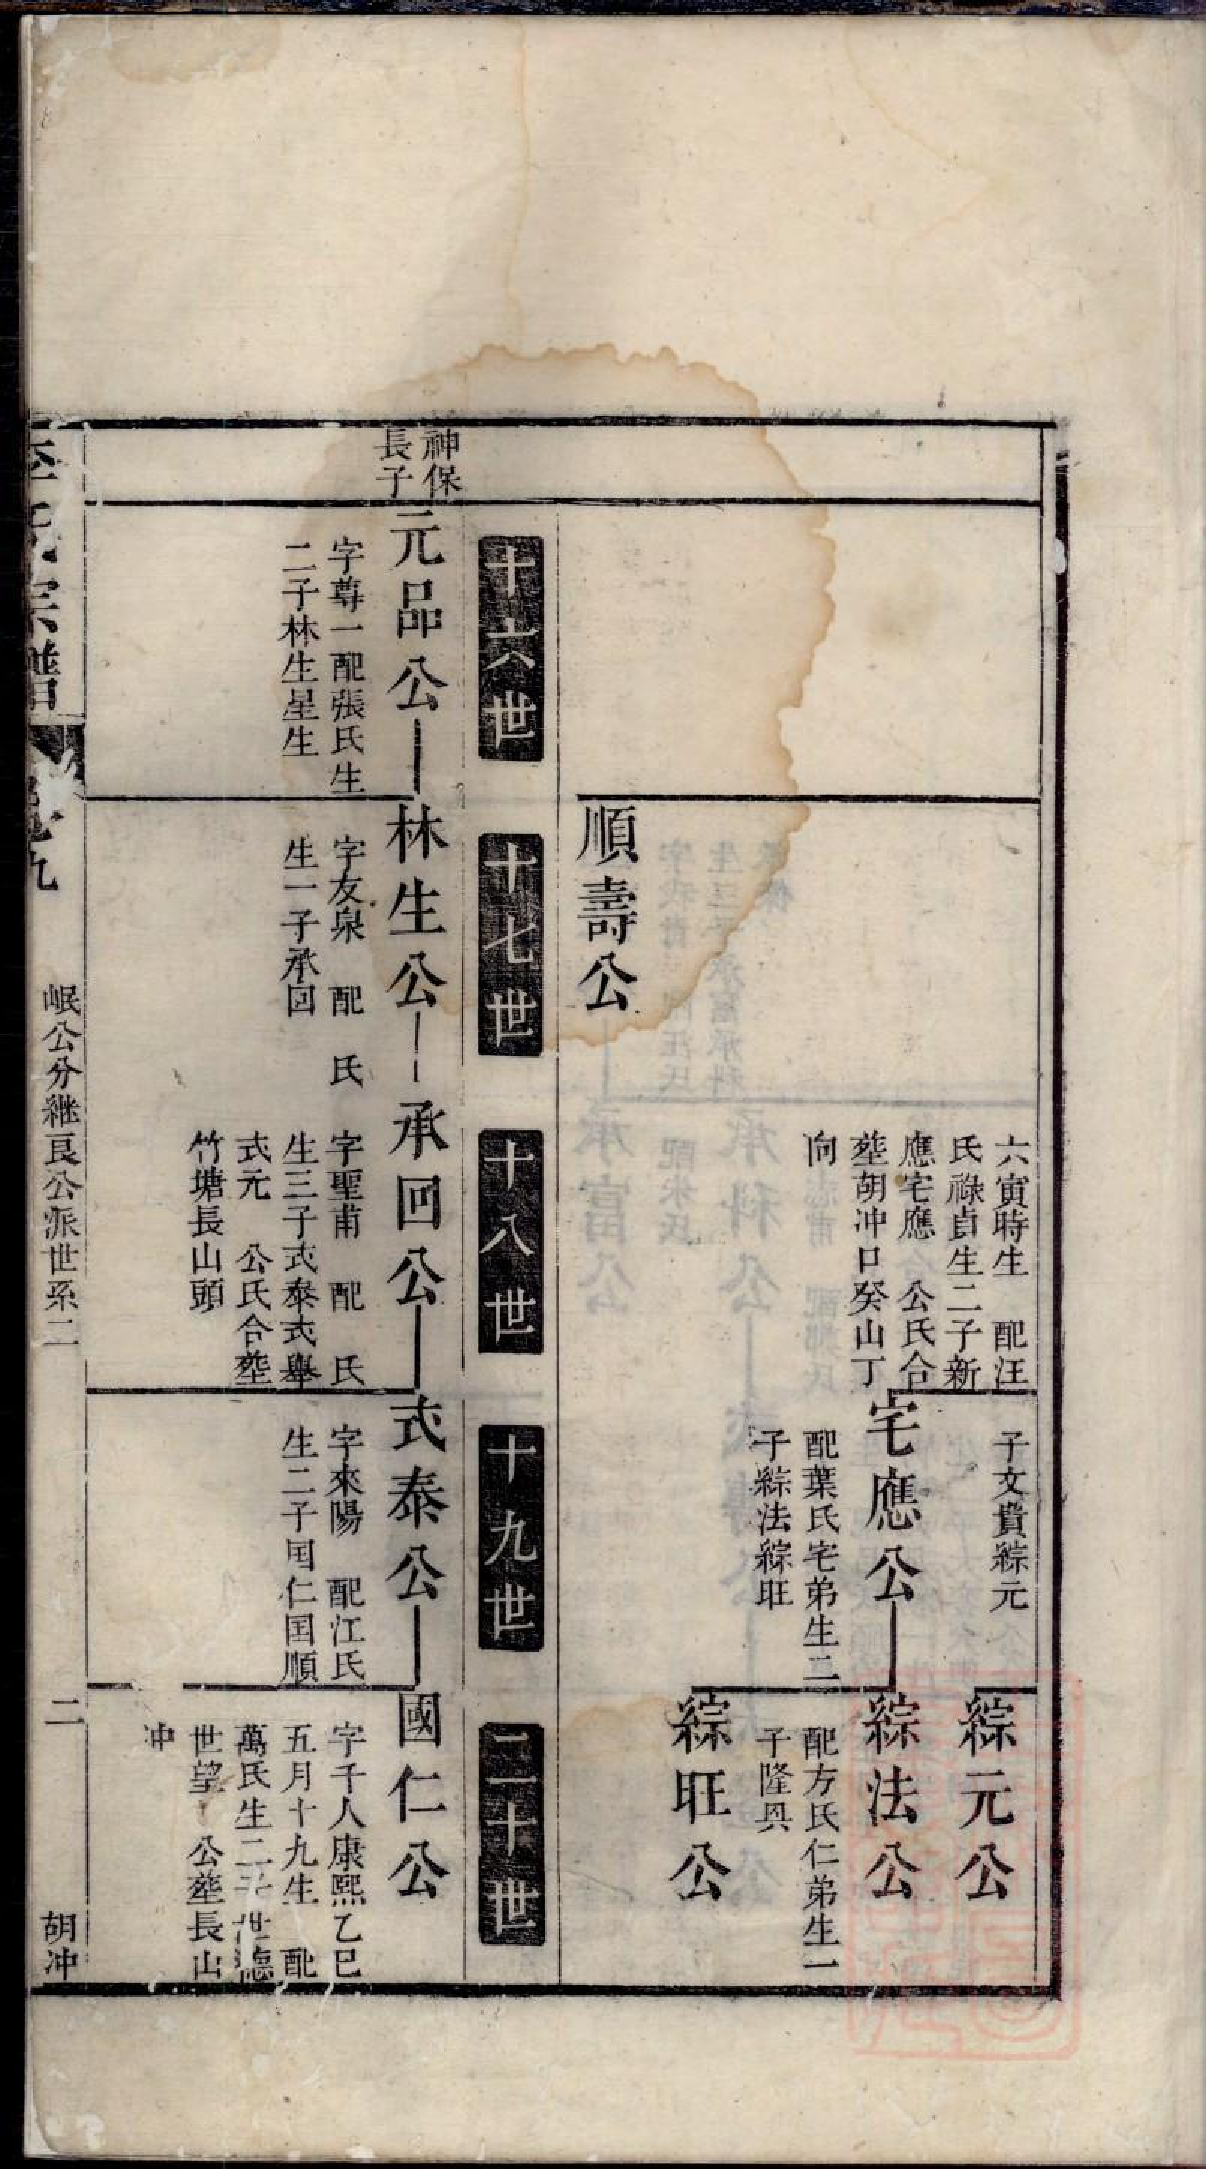 六寅時生　配汪
氏祿貞生二子新
應宅應　公氏合
塟胡冲口癸山丁
向
子文貴綜元
綜元公
宅應公
配葉氏宅弟生二
子綜法綜旺
綜法公
配方氏仁弟生一
子隆興
綜旺公
順壽公
十六世
十七世
十八世
十九世
二十世
神保
長子
元品公
字尊一配張氏生
二子林生星生
林生公
字友泉　配　氏
生一子承囬
承回公
字聖甫　配　氏
生三子式泰式舉
式元　公氏合塟
竹塘長山頭
式泰公
字來陽　配江氏
生二子国仁国順
國仁公
字千人康熙乙巳
五月十九生　配
萬氏生二子世德
世望　公塟長山
冲
氏宗譜
九
岷公分継良公派世系二
二
胡冲